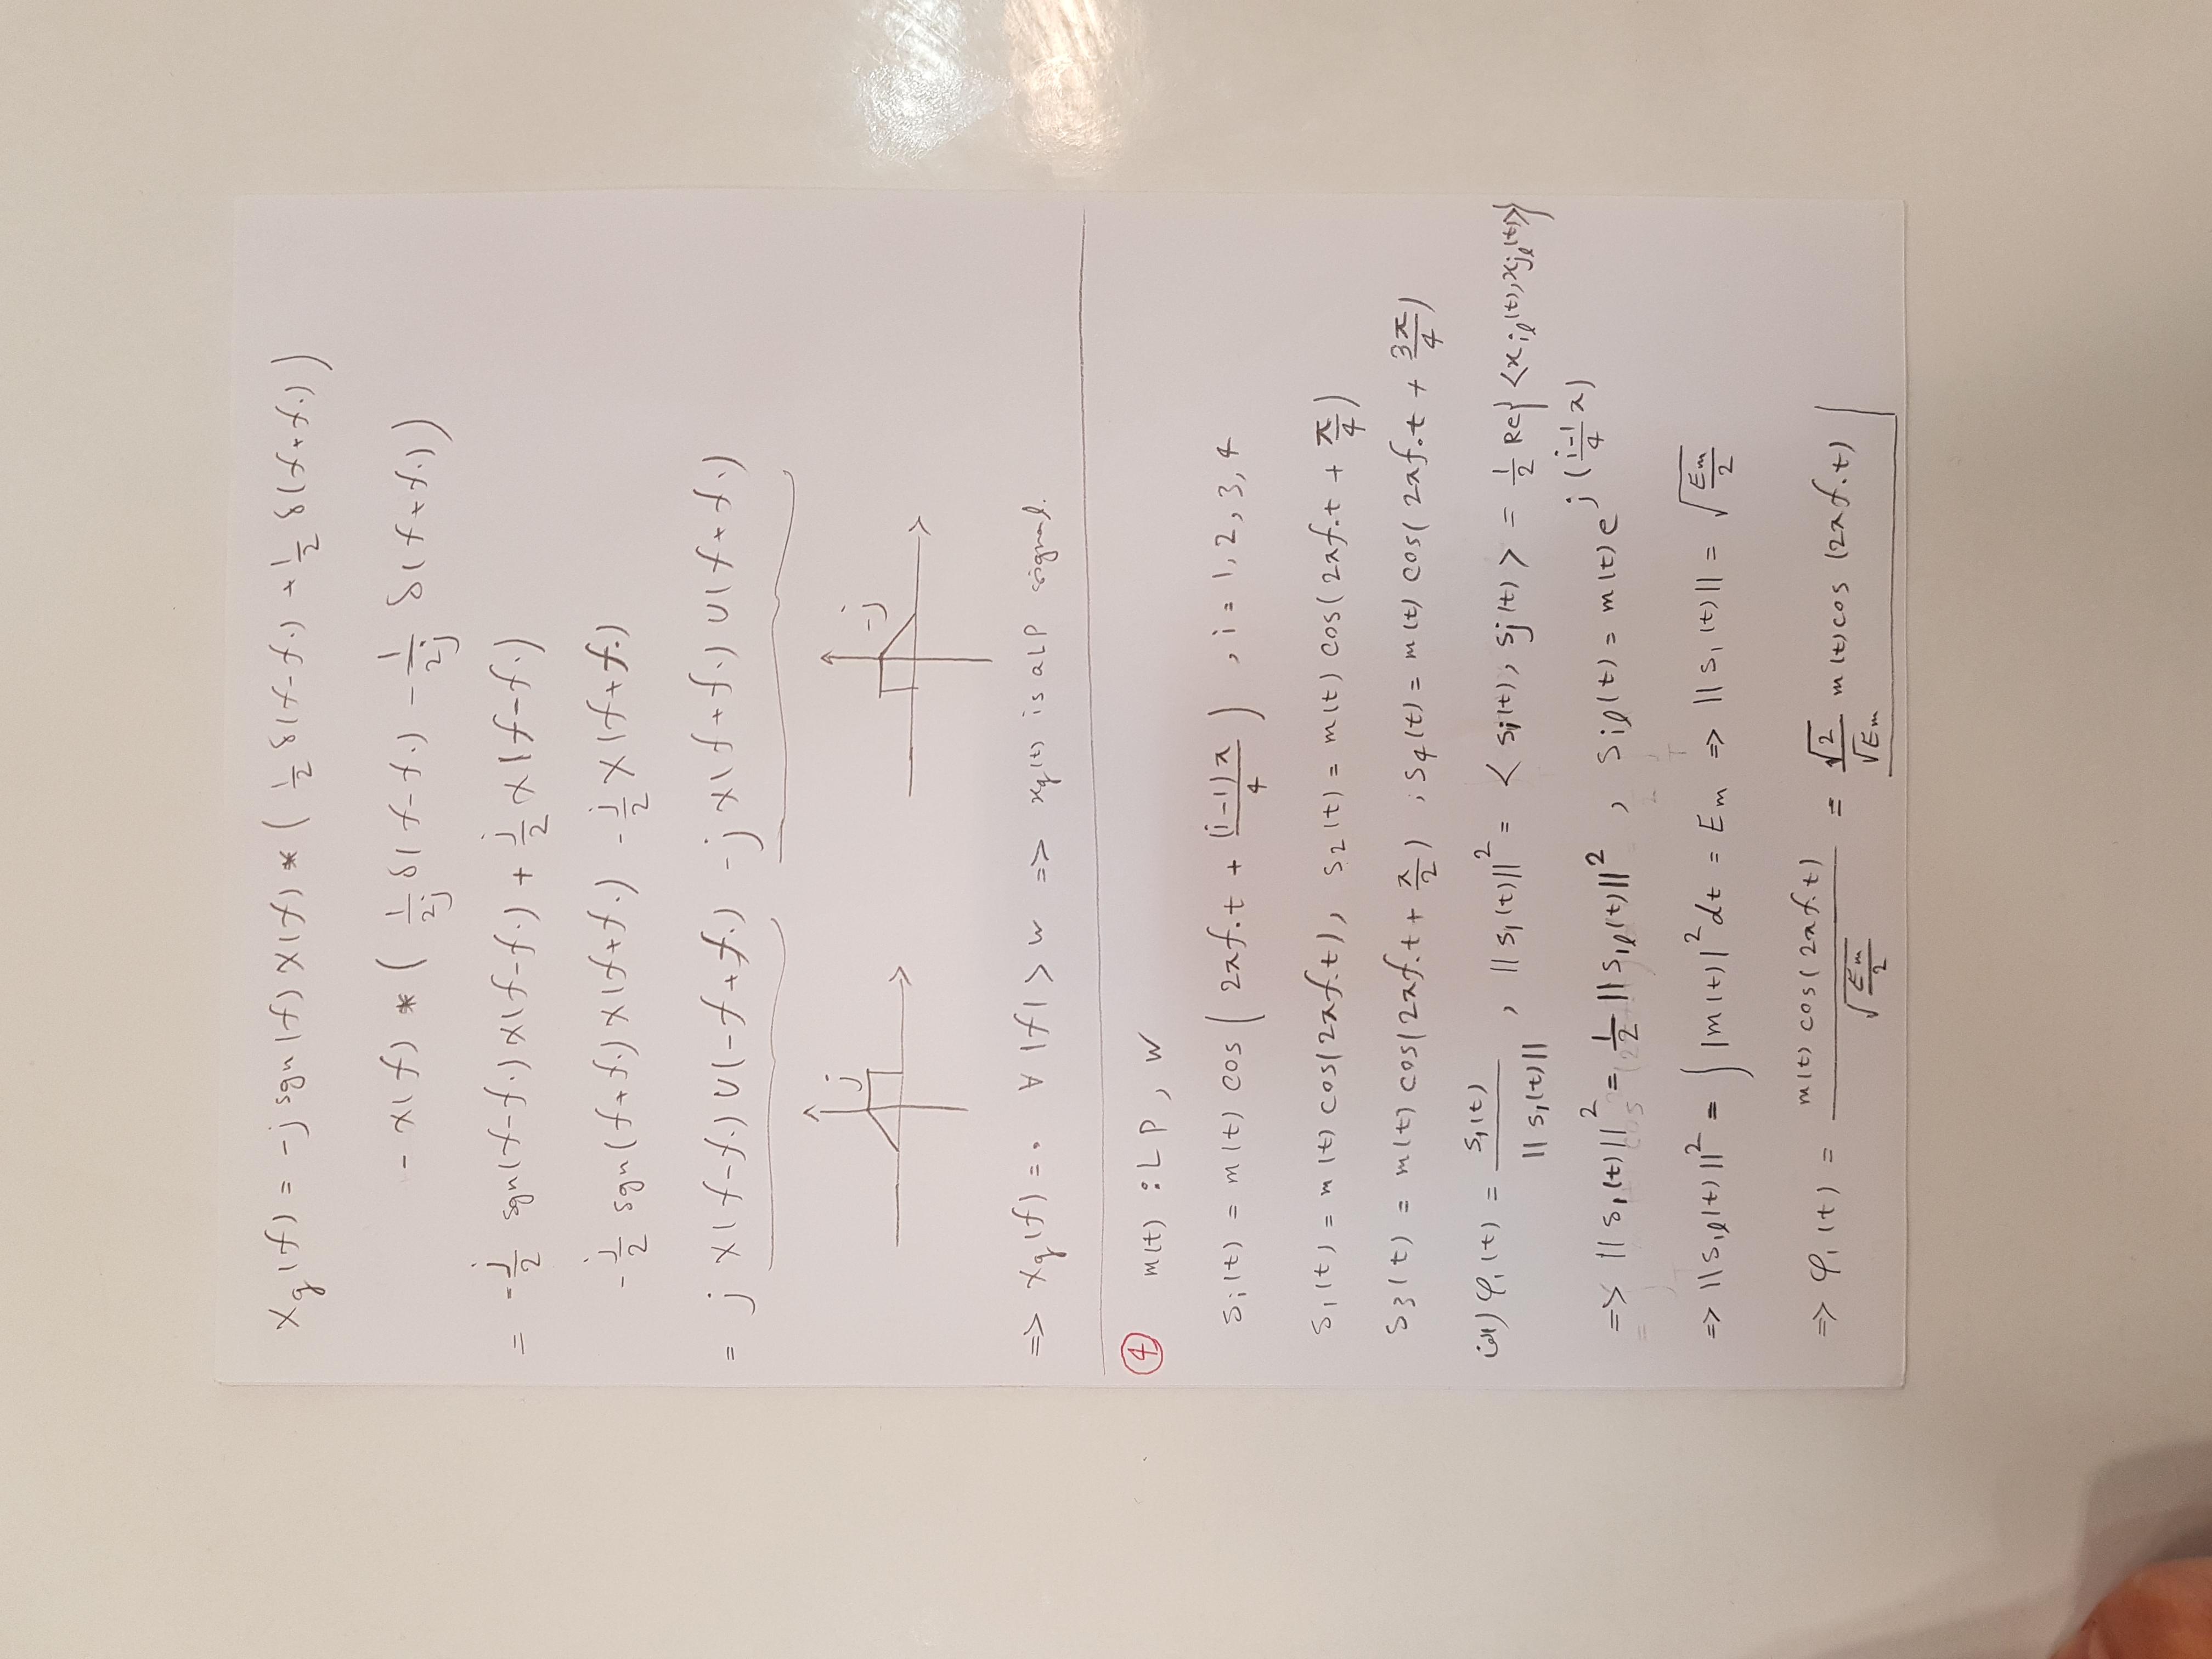 X_q(f) = -j sgn(f) X(f) * ( 1/2 δ(f-f.) + 1/2 δ(f+f.) )
- X(f) * ( 1/2j δ(f-f.) - 1/2j δ(f+f.) )
= -j/2 sgn(f-f.) X(f-f.) + j/2 X(f-f.)
-j/2 sgn(f+f.) X(f+f.) - j/2 X(f+f.)
= j X(f-f.) U(-f+f.) -j X(f+f.) U(f+f.)
j -j
=> X_q(f) = . ∀ |f| > w => x_q(t) is a LP signal.
④ m(t) : LP, W
s_i(t) = m(t) cos( 2πf.t + (i-1)π/4 ) , i = 1, 2, 3, 4
s_1(t) = m(t) cos(2πf.t), s_2(t) = m(t) cos(2πf.t + π/4)
s_3(t) = m(t) cos(2πf.t + π/2) , s_4(t) = m(t) cos(2πf.t + 3π/4)
الف) φ_1(t) = s_1(t) / ||s_1(t)|| , ||s_1(t)||^2 = < s_i(t), s_j(t) > = 1/2 Re{ <x_il(t), x_jl(t)> }
=> ||s_1(t)||^2 = 1/2 ||s_1l(t)||^2 , s_il(t) = m(t) e^{j(i-1/4 π)}
=> ||s_1l(t)||^2 = ∫ |m(t)|^2 dt = E_m => ||s_1(t)|| = √(E_m/2)
=> φ_1(t) = m(t) cos(2πf.t) / √(E_m/2) = √2/√E_m m(t) cos(2πf.t)